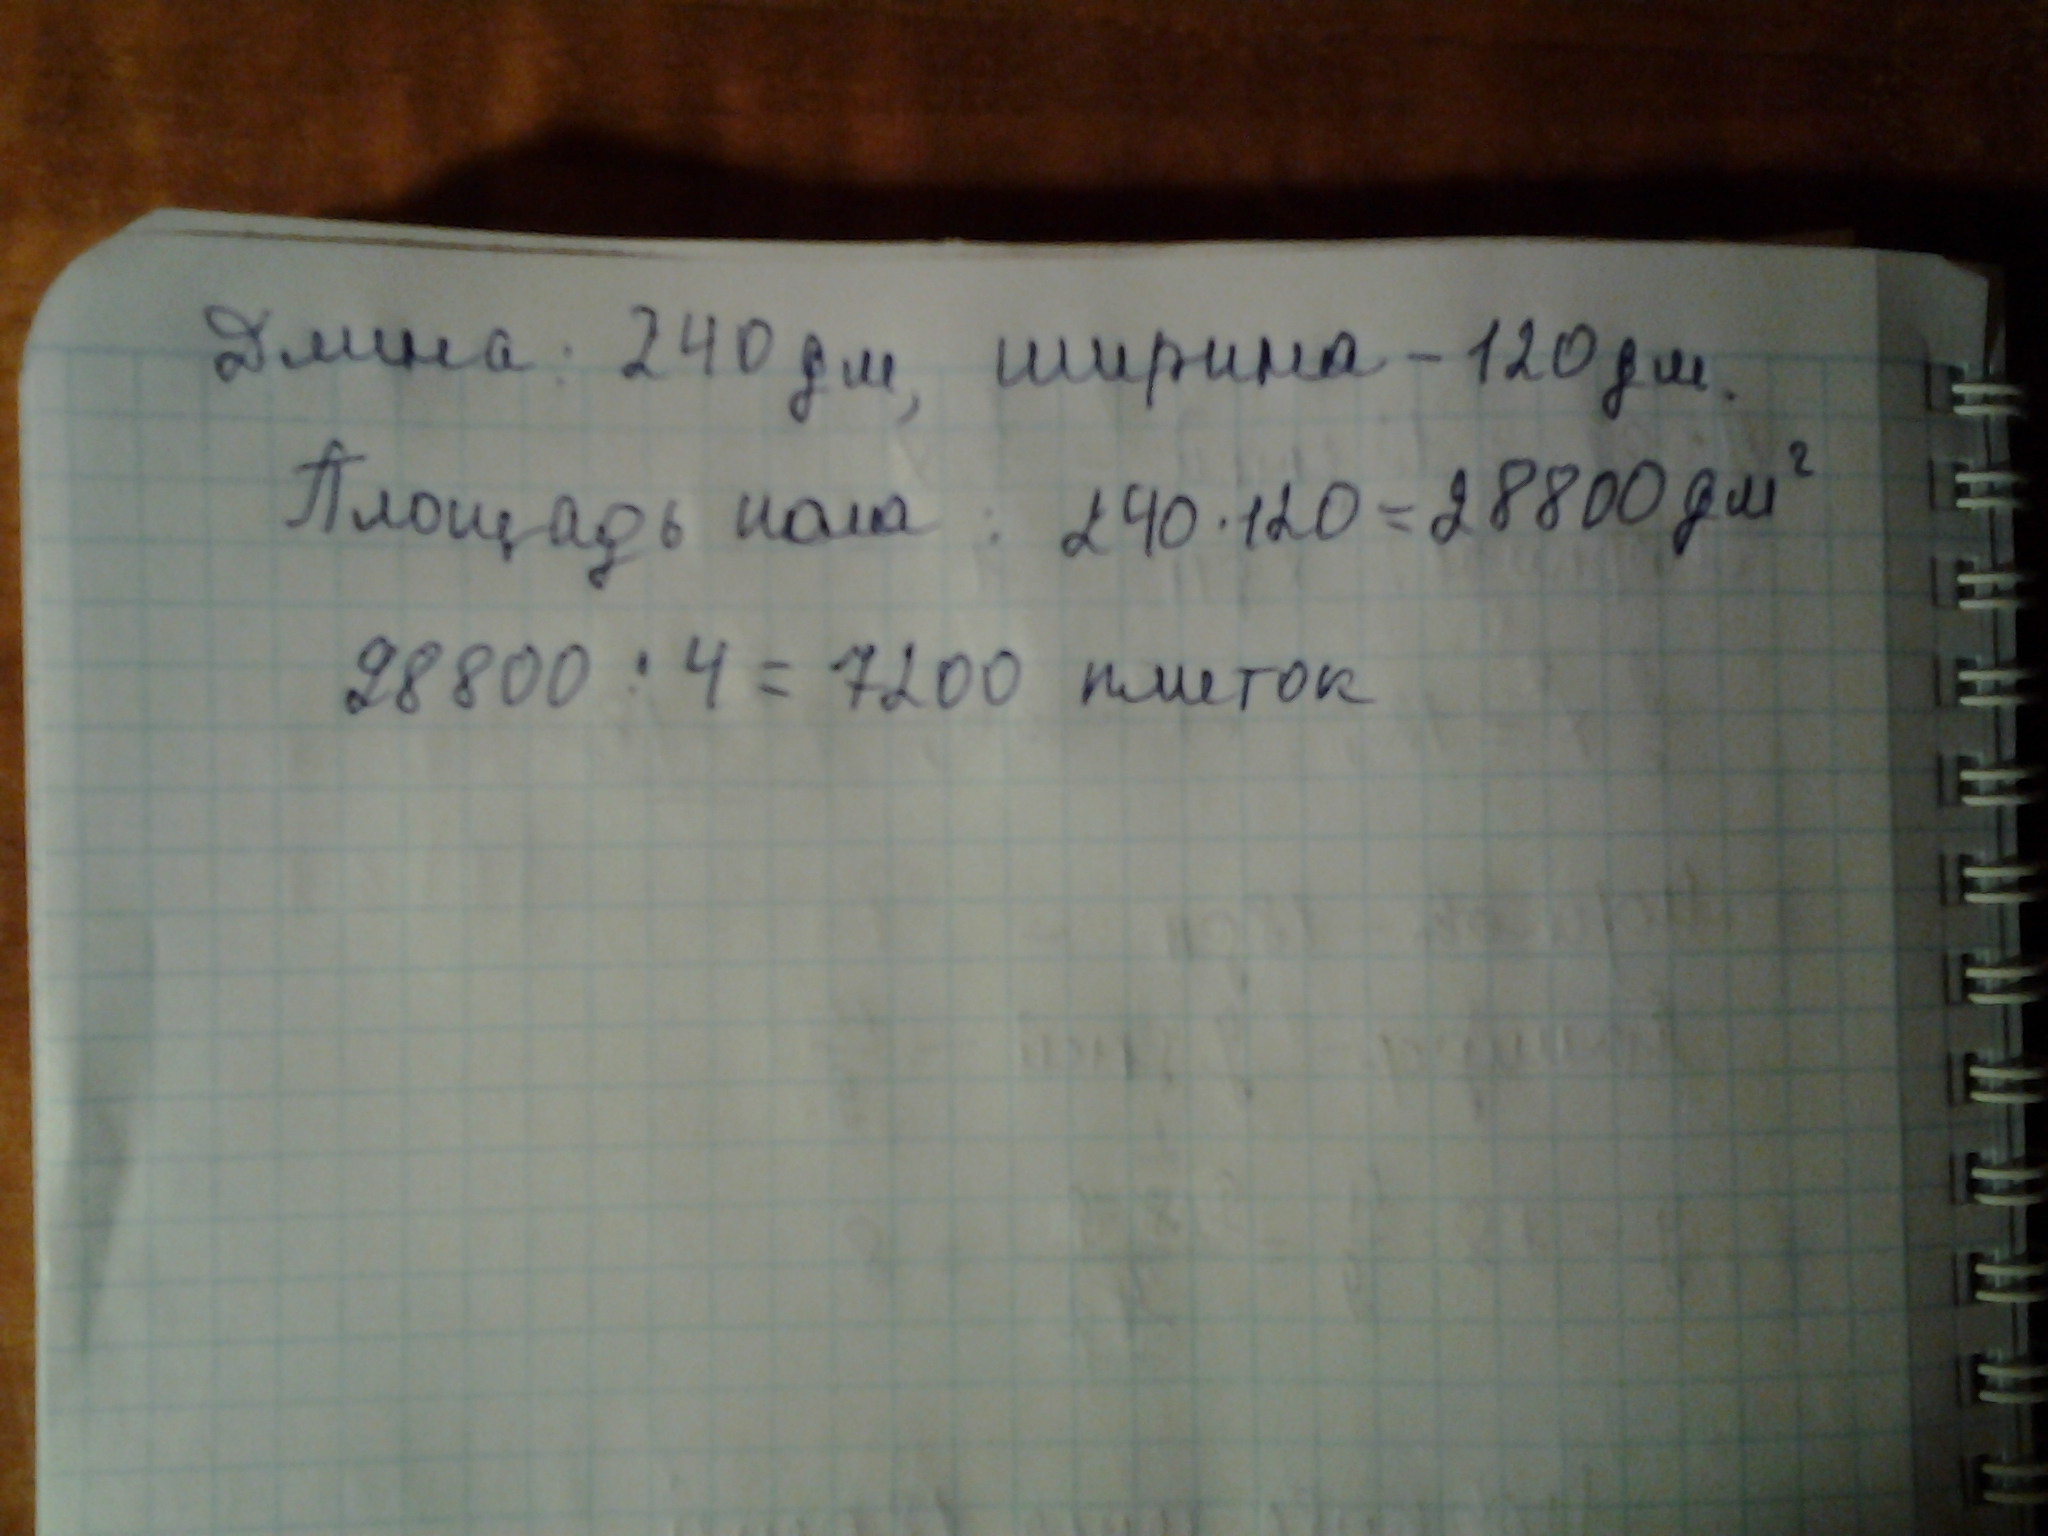 Длина: 240 дм, ширина – 120 дм.
Площадь пола: 240 · 120 = 28800 дм²
28800 : 4 = 7200 плиток